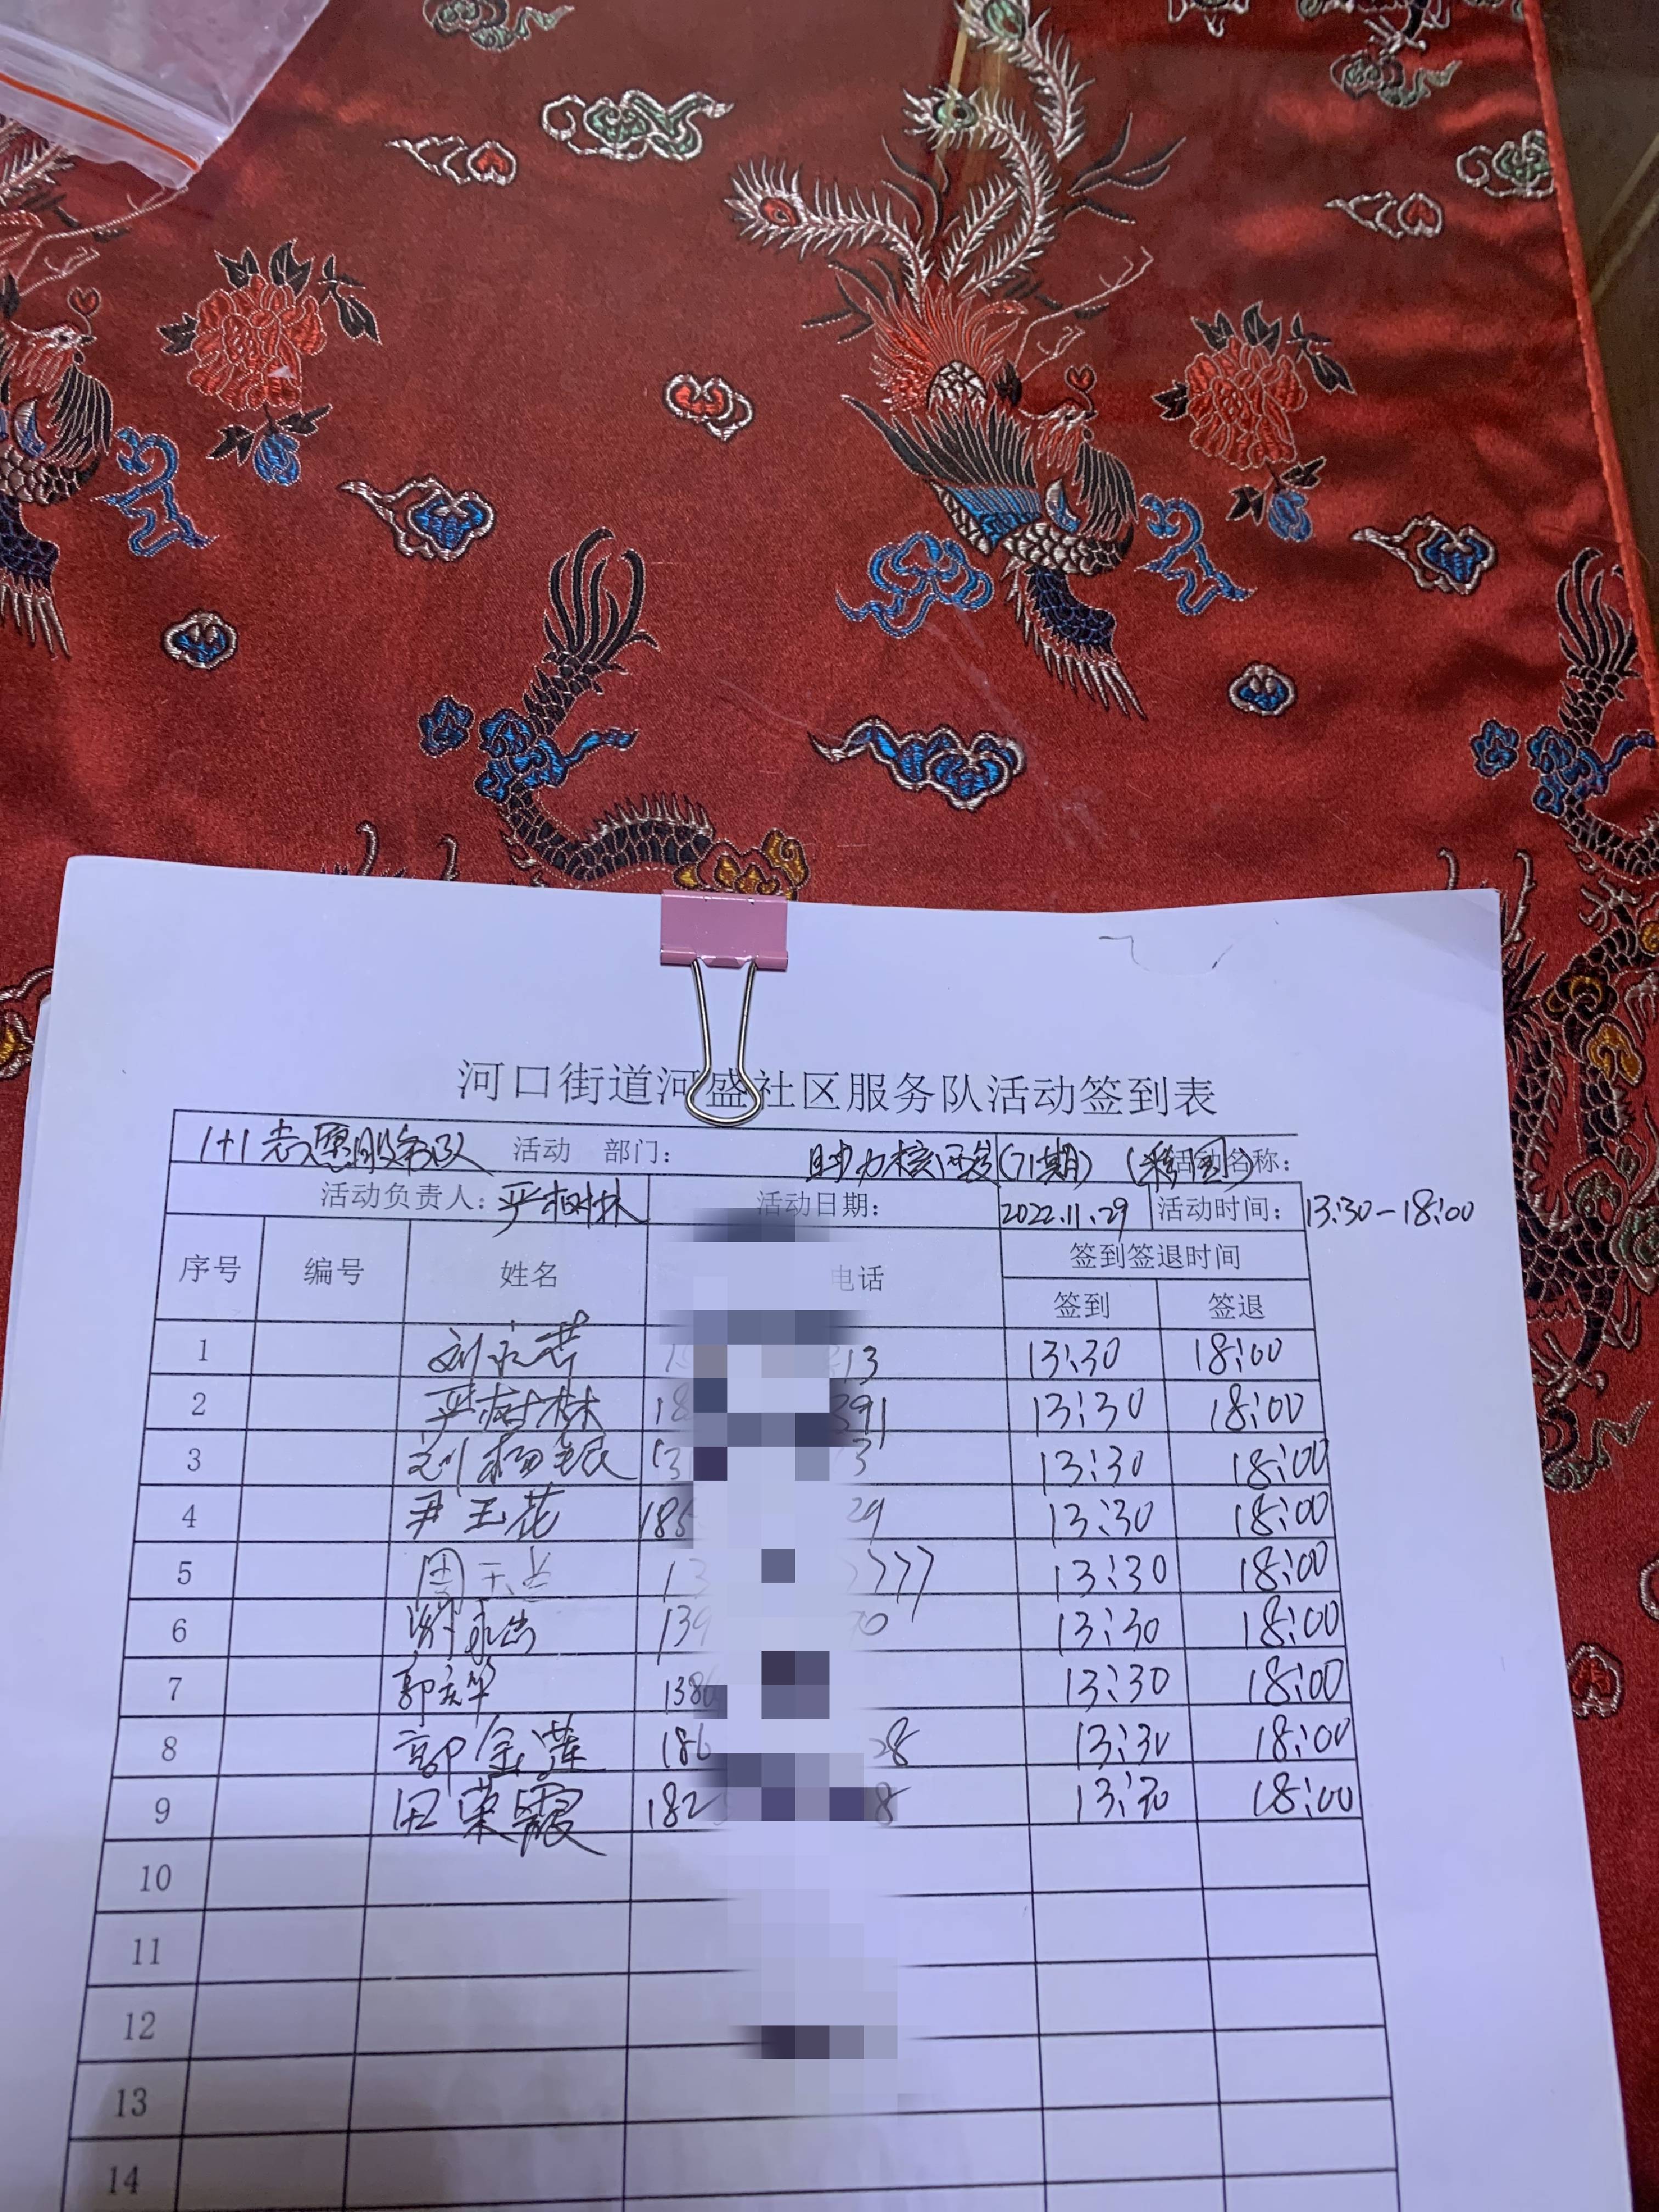 河口街道河盛社区服务队活动签到表
1+1志愿服务队 活动 部门： 助力核酸(71期) 活动名称：
活动负责人：严树林 活动日期： 2022.11.29 活动时间：13:30-18:00
序号 编号 姓名 电话 签到签退时间
签到 签退
1 13 13:30 18:00
2 严树林 18 391 13:30 18:00
3 刘 银 13 3 13:30 18:00
4 尹玉花 185 29 13:30 18:00
5 周 13 777 13:30 18:00
6 谢 139 70 13:30 18:00
7 郭 华 138 13:30 18:00
8 郭金莲 186 28 13:30 18:00
9 田荣霞 182 8 13:30 18:00
10
11
12
13
14